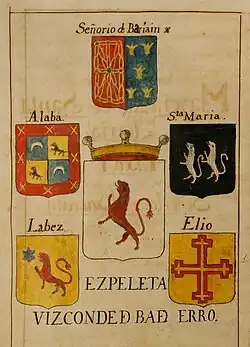 Señorio de Bariain
Alaba.
Sta Maria.
Labez
Elio
EZPELETA
VIZCONDE D BAD ERRO.